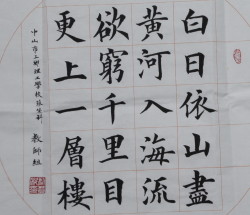 白日依山盡
黃河入海流
欲窮千里目
更上一層樓
中山市三鄉理工學校
教師組